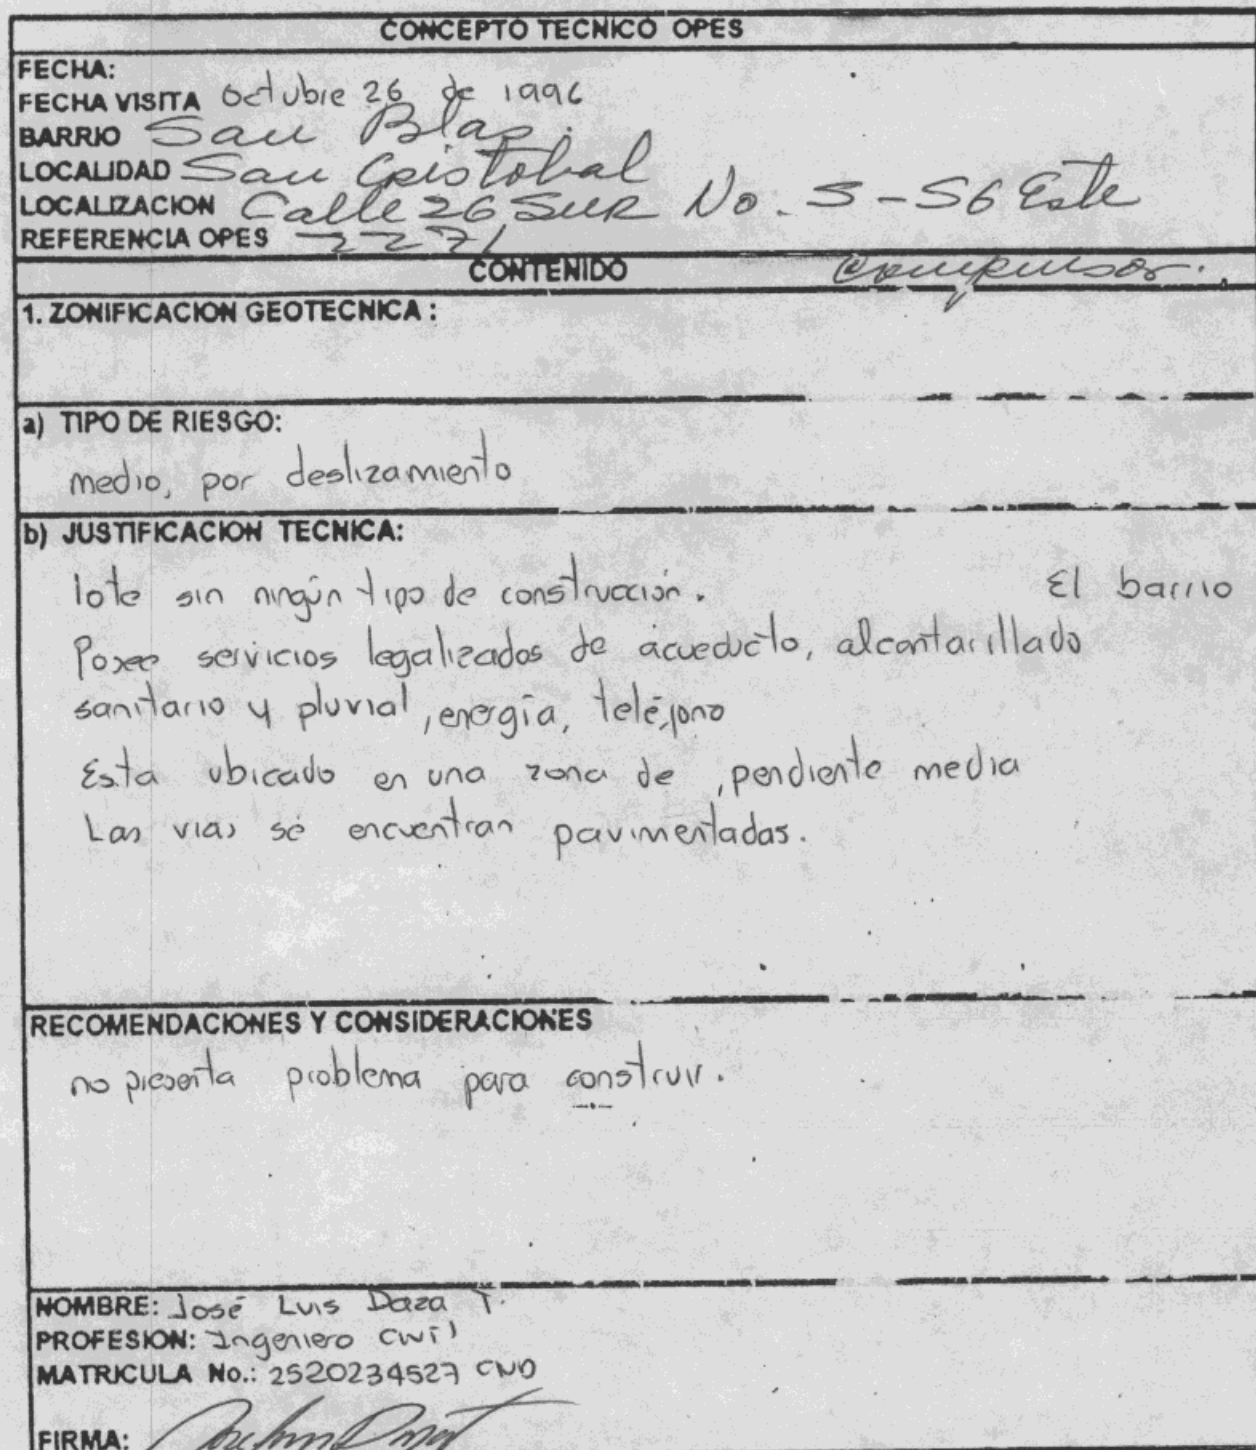 CONCEPTO TECNICO OPES
FECHA:
FECHA VISITA Octubre 26 de 1996
BARRIO San Blas.
LOCALIDAD San Cristobal
LOCALIZACION Calle 26 SUR No. 5-56 Este
REFERENCIA OPES 2271
CONTENIDO
1. ZONIFICACION GEOTECNICA :
a) TIPO DE RIESGO:
medio, por deslizamiento
b) JUSTIFICACION TECNICA:
lote sin ningún tipo de construcción. El barrio
Posee servicios legalizados de acueducto, alcantarillado
sanitario y pluvial, energía, teléfono
Esta ubicado en una zona de , pendiente media
Las vias se encuentran pavimentadas.
RECOMENDACIONES Y CONSIDERACIONES
no presenta problema para construir.
NOMBRE: José Luis Daza T.
PROFESION: Ingeniero Civil
MATRICULA No.: 2520234527 CND
FIRMA: